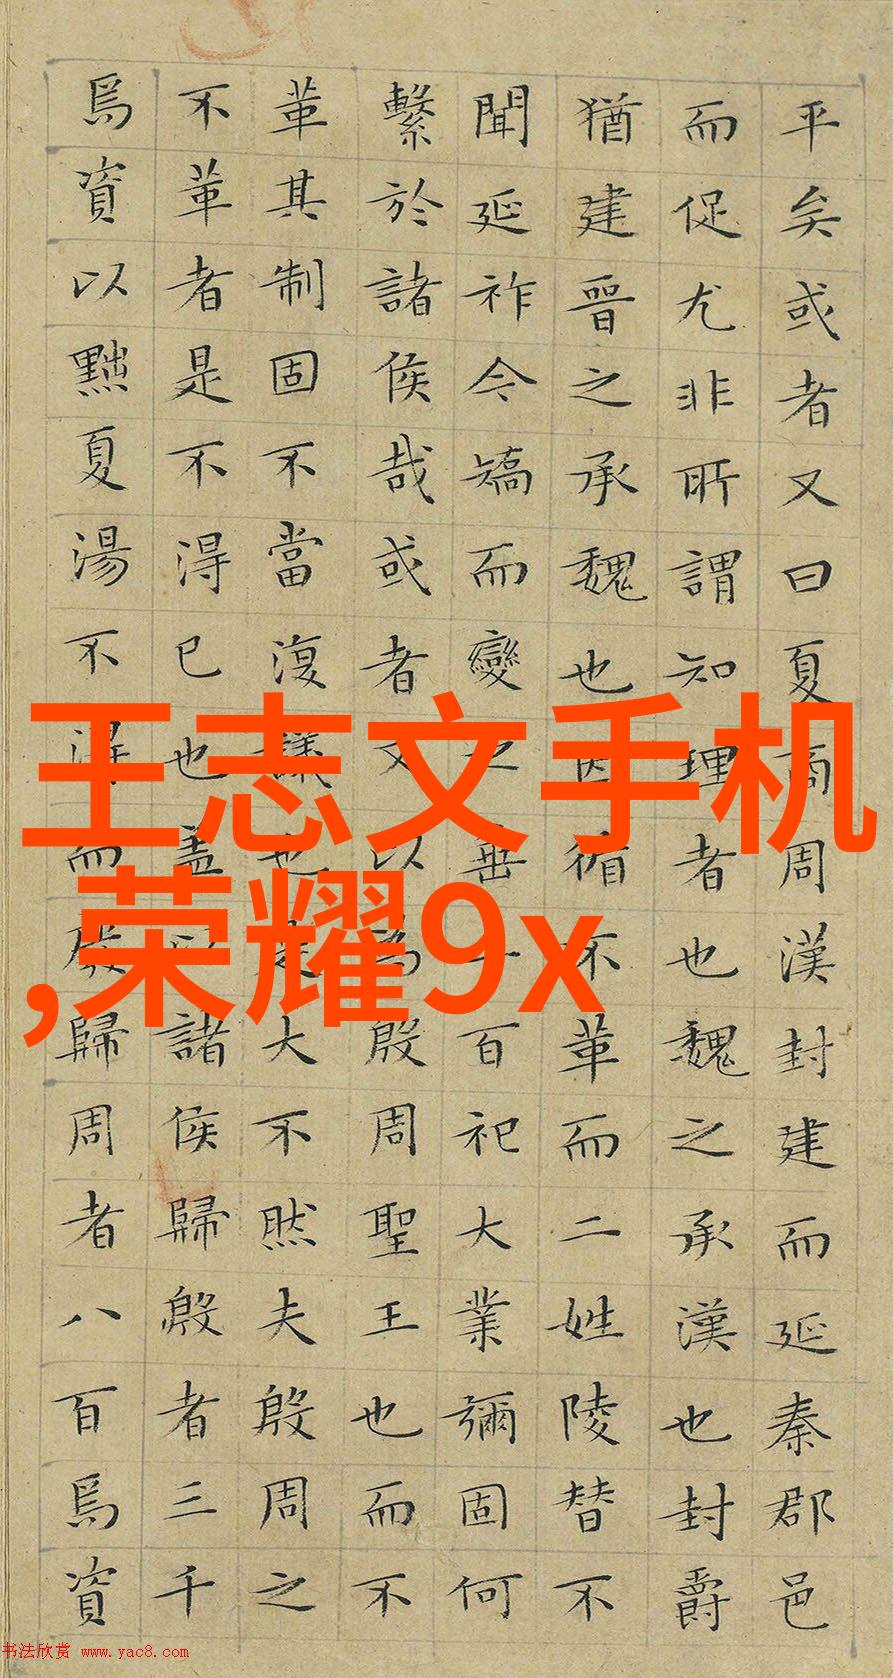 平矣或者又曰夏商周漢封建而延秦郡邑
而促尤非所謂知理者也魏之承漢也封爵
猶建晉之承魏也因循不革而二姓陵替不
聞延祚今矯而變之垂二百祀大業彌固何
繫於諸侯哉或者又以為殷周聖王也而不
革其制固不當復議也是大不然夫殷周之
不革者是不得已也蓋以諸侯歸殷者三千
焉資以黜夏湯不得而廢歸周者八百焉資
王志文手机
,荣耀9x
书法欣赏 www.yac8.com